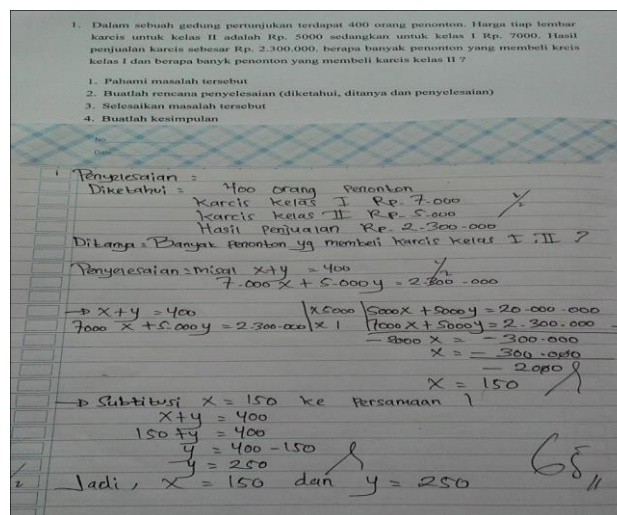 1. Dalam sebuah gedung pertunjukan terdapat 400 orang penonton. Harga tiap lembar
karcis untuk kelas II adalah Rp. 5000 sedangkan untuk kelas I Rp. 7000. Hasil
penjualan karcis sebesar Rp. 2.300.000, berapa banyak penonton yang membeli kreis
kelas I dan berapa banyk penonton yang membeli karcis kelas II ?
1. Pahami masalah tersebut
2. Buatlah rencana penyelesaian (diketahui, ditanya dan penyelesaian)
3. Selesaikan masalah tersebut
4. Buatlah kesimpulan
No
Date
1 Penyelesaian :
Diketahui = 400 orang penonton
Karcis kelas I Rp. 7.000
karcis kelas II Rp. 5.000
Hasil penjualan Rp. 2.300.000
Ditanya = Banyak penonton yg membeli karcis kelas I, II ?
Penyelesaian = misal x+y = 400
7.000 x + 5.000 y = 2.300.000
→ x+y = 400 | x 5000 | 5000x + 5000y = 20.000.000
7000 x + 5.000 y = 2.300.000 | x 1 | 7000x + 5000y = 2.300.000 -
- 2000 x = - 300.000
x = - 300.000
- 2000
x = 150
→ Subtitusi x = 150 ke Persamaan 1
x+y = 400
150 + y = 400
y = 400 - 150
y = 250
Jadi, x = 150 dan y = 250
65